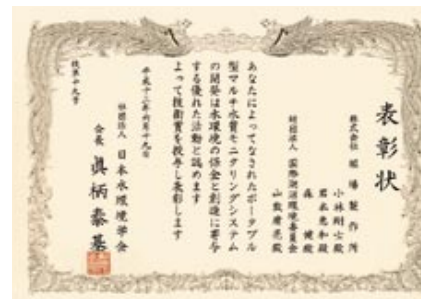 表彰状
株式会社 堀場製作所
小林剛士殿
岩本恵和殿
森 健殿
財団法人 国際湖沼環境委員会
山敷庸亮殿
あなたによってなされたポータブル
型マルチ水質モニタリングシステム
の開発は水環境の保全と創造に寄与
する優れた活動と認めます
よって技術賞を授与し表彰します
平成十二年六月十九日
社団法人 日本水環境学会
会長 眞柄泰基
技第十九号